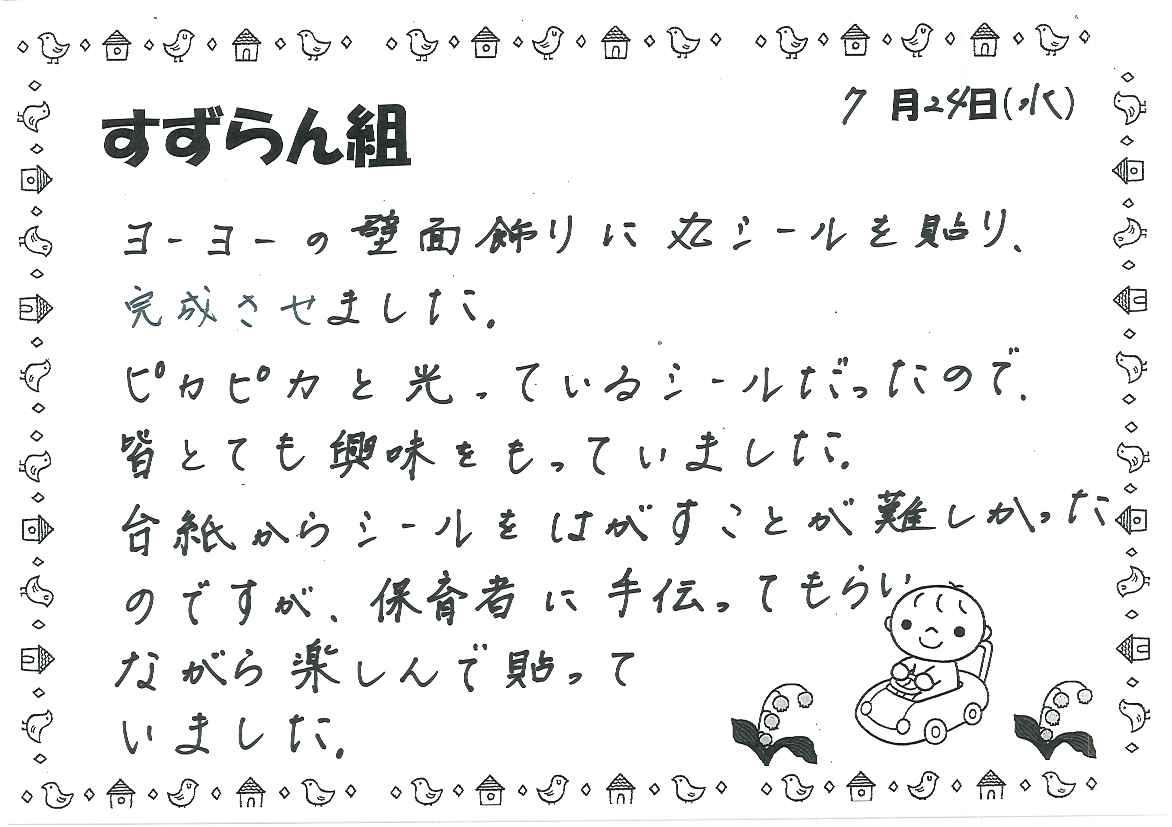 7月24日(水)
すずらん組
ヨーヨーの壁面飾りに丸シールを貼り、
完成させました。
ピカピカと光っているシールだったので、
皆とても興味をもっていました。
台紙からシールをはがすことが難しかった
のですが、保育者に手伝ってもらい
ながら楽しんで貼って
いました。